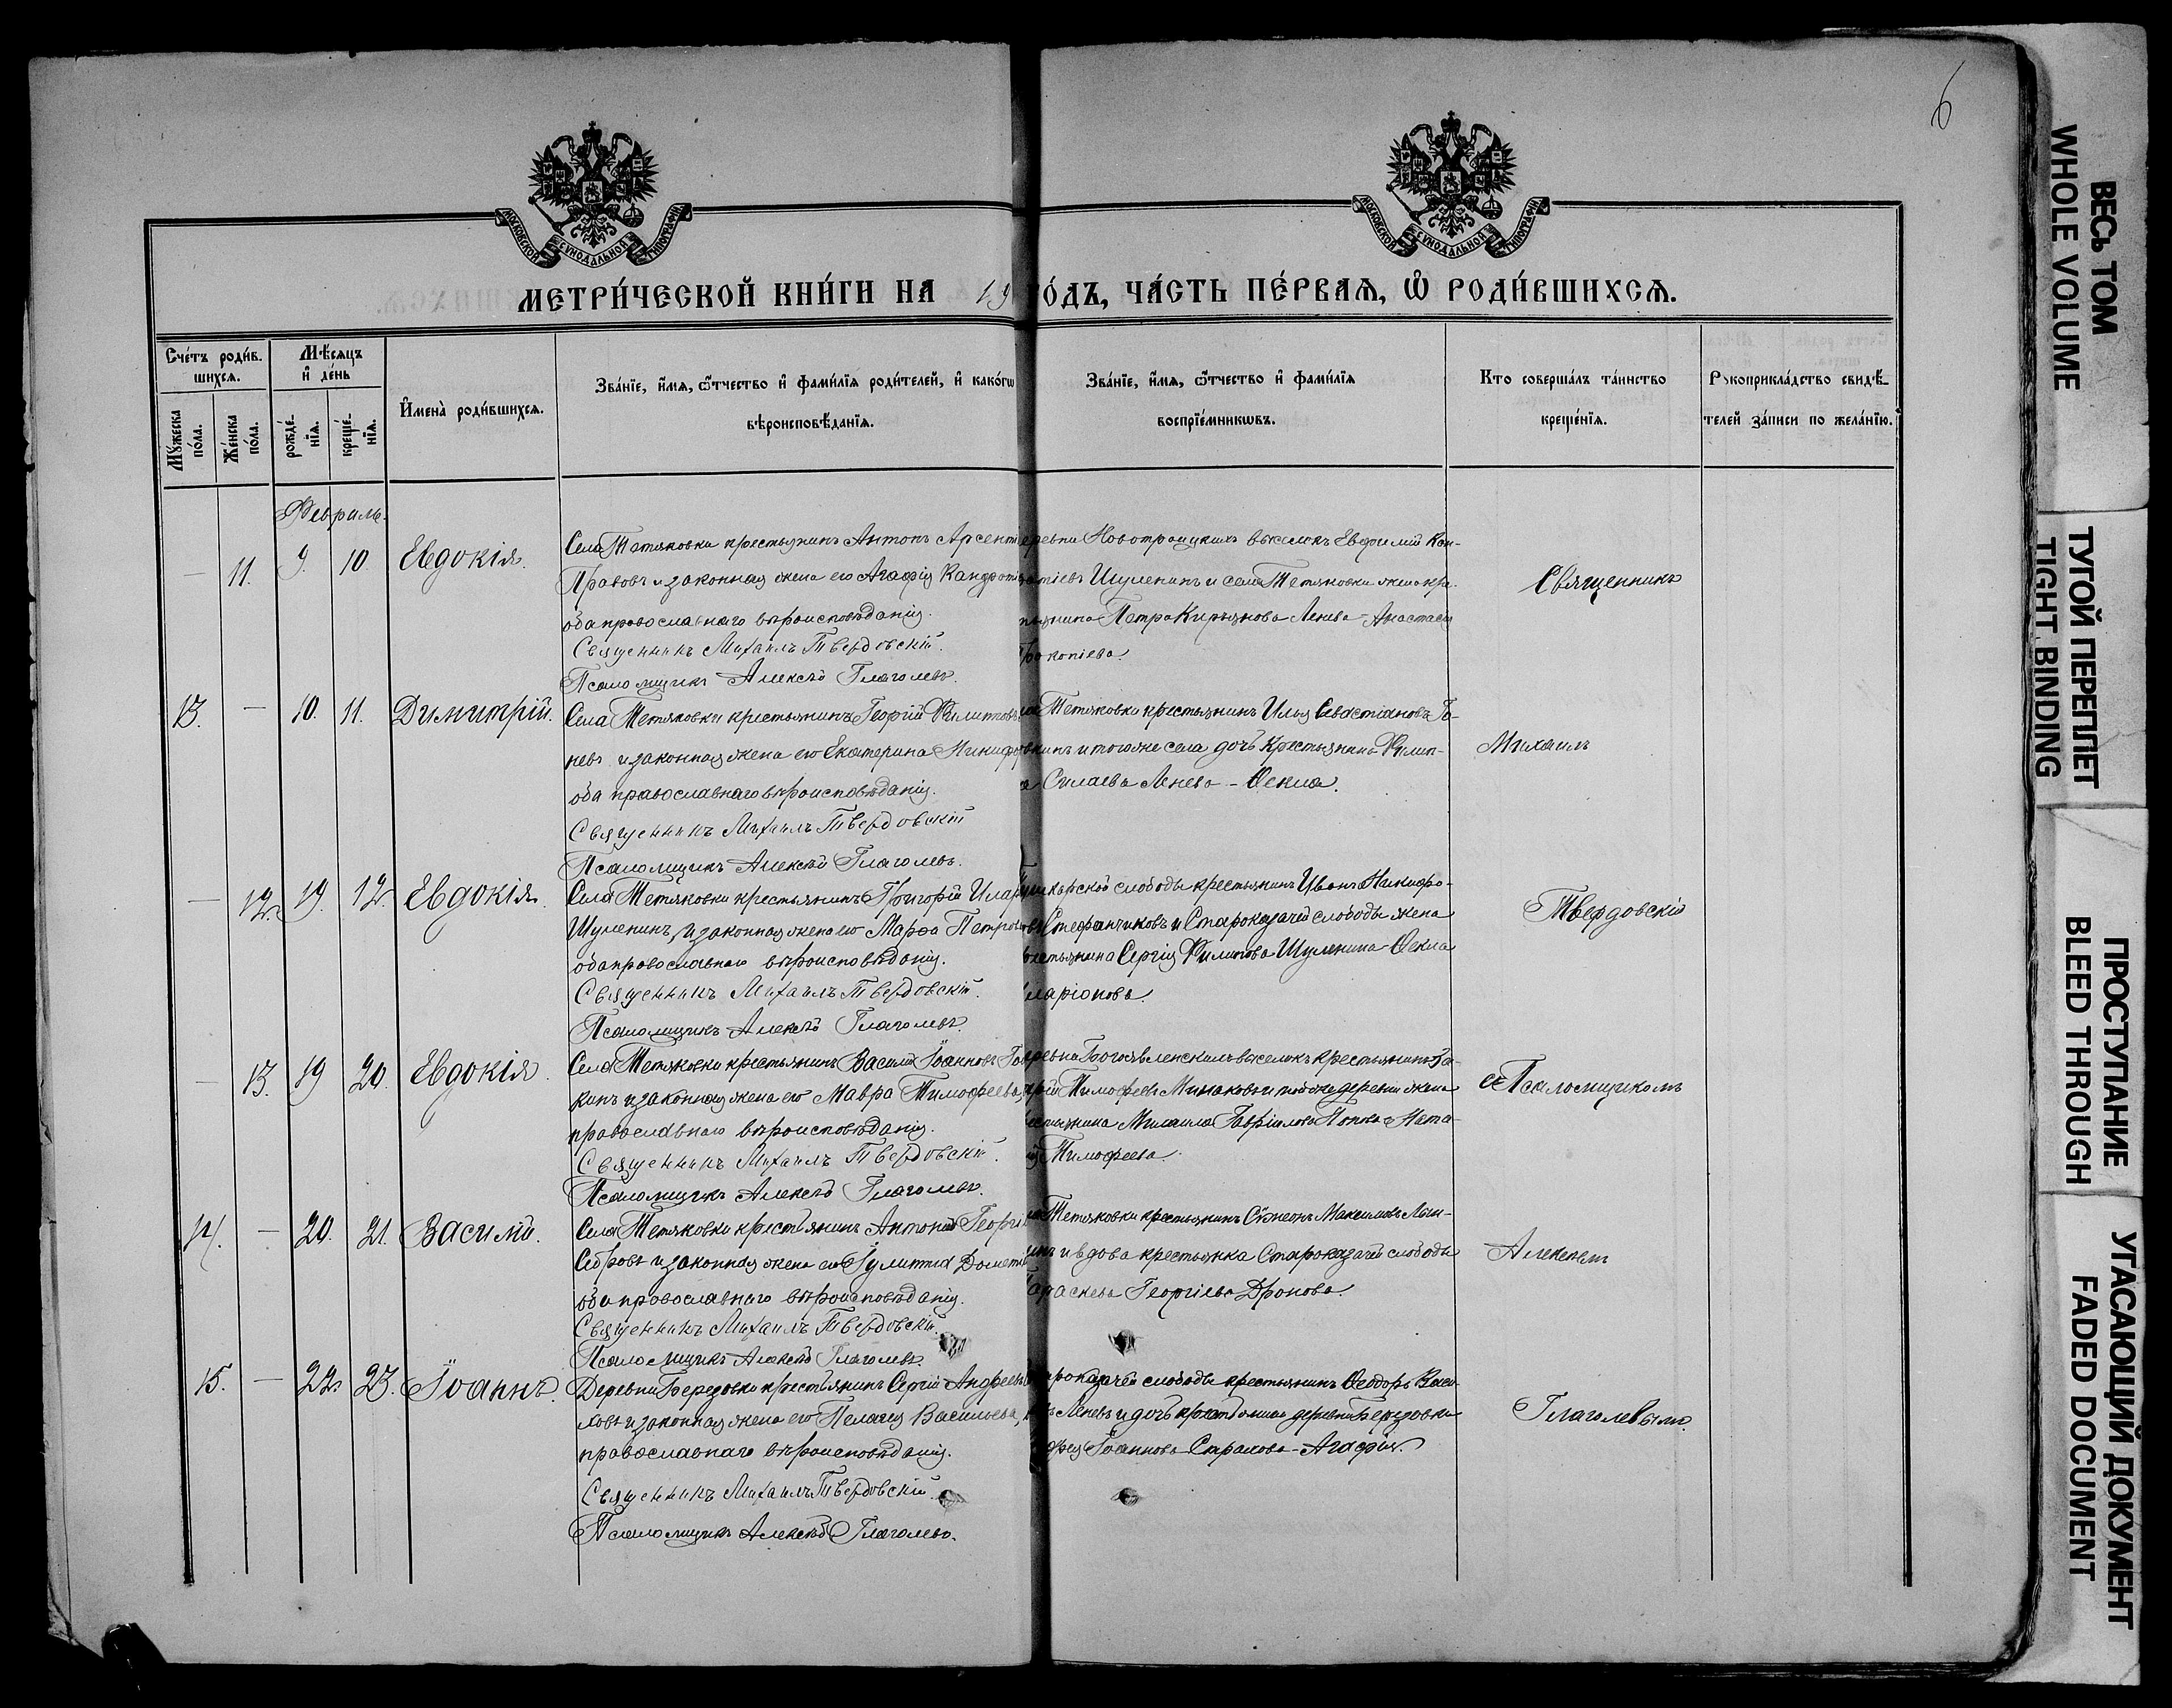 6
МОСКОВСКОЙ СУНОДАЛЬНОЙ ТИПОГРАФІИ
МОСКОВСКОЙ СУНОДАЛЬНОЙ ТИПОГРАФІИ
МЕТРИ́ЧЕСКОЙ КНИ́ГИ НА 19 О́ДЪ, ЧА́СТЬ ПЕ́РВАѦ, Ѡ҆ РОДИ́ВШИХСѦ.
Сче́тъ роди́в.
шихсѧ.
Мꙋ́жеска
по́ла.
Же́нска
по́ла.
Мѣ́сѧцъ
и҆ де́нь
рожде́-
нїѧ.
креще́-
нїѧ.
И҆мена̀ роди́вшихсѧ.
Зва́нїе, и҆́мѧ, ѻ҆́тчество и҆ фамі́лїѧ роди́телей, и҆ како́гѡ
вѣроисповѣ́данїѧ.
Зва́нїе, и҆́мѧ, ѻ҆́тчество и҆ фамі́лїѧ
воспрїе́мникѡвъ.
Кто̀ соверша́лъ та́инство
креще́нїѧ.
Рꙋкоприкла́дство свидѣ́-
телей за́писи по жела́нїю.
Февраль.
— 11. 9. 10. Евдокія.
Села Тетяковки крестьянинъ Антонъ Арсенті
и законная жена его Агафія Кандрат
оба православнаго вѣроисповѣданія.
Священникъ Михаилъ Твердовскій.
Псаломщикъ Алексѣй Глаголевъ.
еревни Новотроицкихъ выселокъ Евфимій Кон-
Шуленинъ и села Тетяковки жена кре-
Петра Кирьянова Ленева – Анастасія
рокопіева.
Священникъ
13. — 10. 11. Димитрій.
Села Тетяковки крестьянинъ Георгій Филиппов
невъ и законная жена его Екатерина Никиф
оба православнаго вѣроисповѣданія.
Священникъ Михаилъ Твердовскій
Псаломщикъ Алексѣй Глаголевъ.
Тетяковки крестьянинъ Илья Севастіановъ Го-
и того же села дочь крестьянина Филип-
а Силаева Ленева – Ѳекла.
Михаилъ
— 12. 19. 12. Евдокія.
Села Тетяковки крестьянинъ Григорій Илар
Шуленинъ, и законная жена его Марѳа Петров
оба православнаго вѣроисповѣданія.
Священникъ Михаилъ Твердовскій.
Псаломщикъ Алексѣй Глаголевъ.
слободы крестьянинъ Иванъ Никифо-
Стефанчиковъ и Староказачей слободы жена
Сергія Филипова Шуленина – Ѳекла
ларіонова.
Твердовскій
— 13. 19 20. Евдокія.
Села Тетяковки крестьянинъ Василій Іоанновъ Го
кинъ и законная жена его Мавра Тимофеева,
православнаго вѣроисповѣданія.
Священникъ Михаилъ Твердовскій.
Псаломщикъ Алексѣй Глаголевъ.
Богоявленскихъ выселокъ крестьянинъ
Тимофеевъ Минаковъ и той же деревни жена
Михаила Гавріилова Попова – Ната-
Тимофеева.
съ Псаломщикомъ
14. — 20. 21. Василій.
Села Тетяковки крестьянинъ Антоній Георгі
и законная жена его Іулитта Домет
оба православнаго вѣроисповѣданія.
Священникъ Михаилъ Твердовскій.
Псаломщикъ Алексѣй Глаголевъ.
Тетяковки крестьянинъ Симеонъ Максимовъ
и вдова крестьянка Староказачей слободы
араскева Георгіева Дронова.
Алексѣемъ
15. — 22. 23. Іоаннъ.
Деревни Березовки крестьянинъ Сергій Андреевъ
ховъ и законная жена его Пелагія Васильева,
православнаго вѣроисповѣданія.
Священникъ Михаилъ Твердовскій.
Псаломщикъ Алексѣй Глаголевъ.
роказачей слободы крестьянинъ Ѳеодоръ Васи-
Леневъ и дочь крестьянина деревни Березовки
Іоаннова Страхова – Агафія.
Глаголевымъ.
ВЕСЬ ТОМ
WHOLE VOLUME
ТУГОЙ ПЕРЕПЛЕТ
TIGHT BINDING
ПРОСТУПАНИЕ
BLEED THROUGH
УГАСАЮЩИЙ ДОКУМЕНТ
FADED DOCUMENT